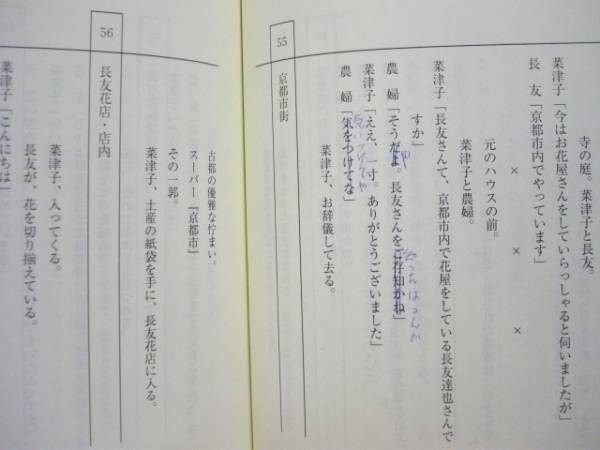 寺の庭。菜津子と長友。
菜津子「今はお花屋さんをしていらっしゃると伺いましたが」
長　友「京都市内でやっています」
×　×　×
元のハウスの前。
菜津子と農婦。
菜津子「長友さんて、京都市内で花屋をしている長友達也さんで
すか」
農　婦「そうだよ。長友さんをご存知かね」
や
会っちはるんか
菜津子「ええ、一寸。ありがとうございました」
農　婦「気をつけてな」
気いつけてや
菜津子、お辞儀して去る。
55
京都市街
古都の優雅な佇まい。
スーパー『京都市』
その一郭。
菜津子、土産の紙袋を手に、長友花店に入る。
56
長友花店・店内
菜津子、入ってくる。
長友が、花を切り揃えている。
菜津子「こんにちは」